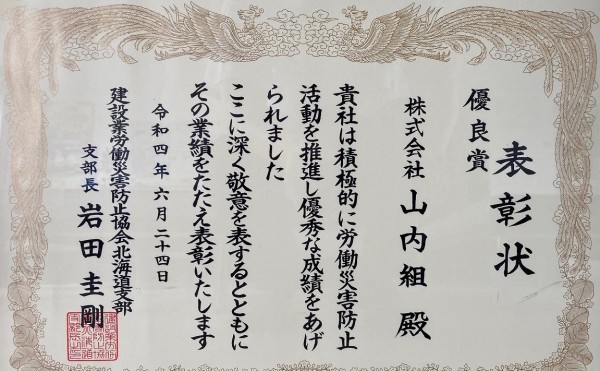 表彰状
優良賞
株式会社 山内組 殿
貴社は積極的に労働災害防止
活動を推進し優秀な成績をあげ
られました
ここに深く敬意を表するとともに
その業績をたたえ表彰いたします
令和四年六月二十四日
建設業労働災害防止協会北海道支部
支部長 岩田圭剛